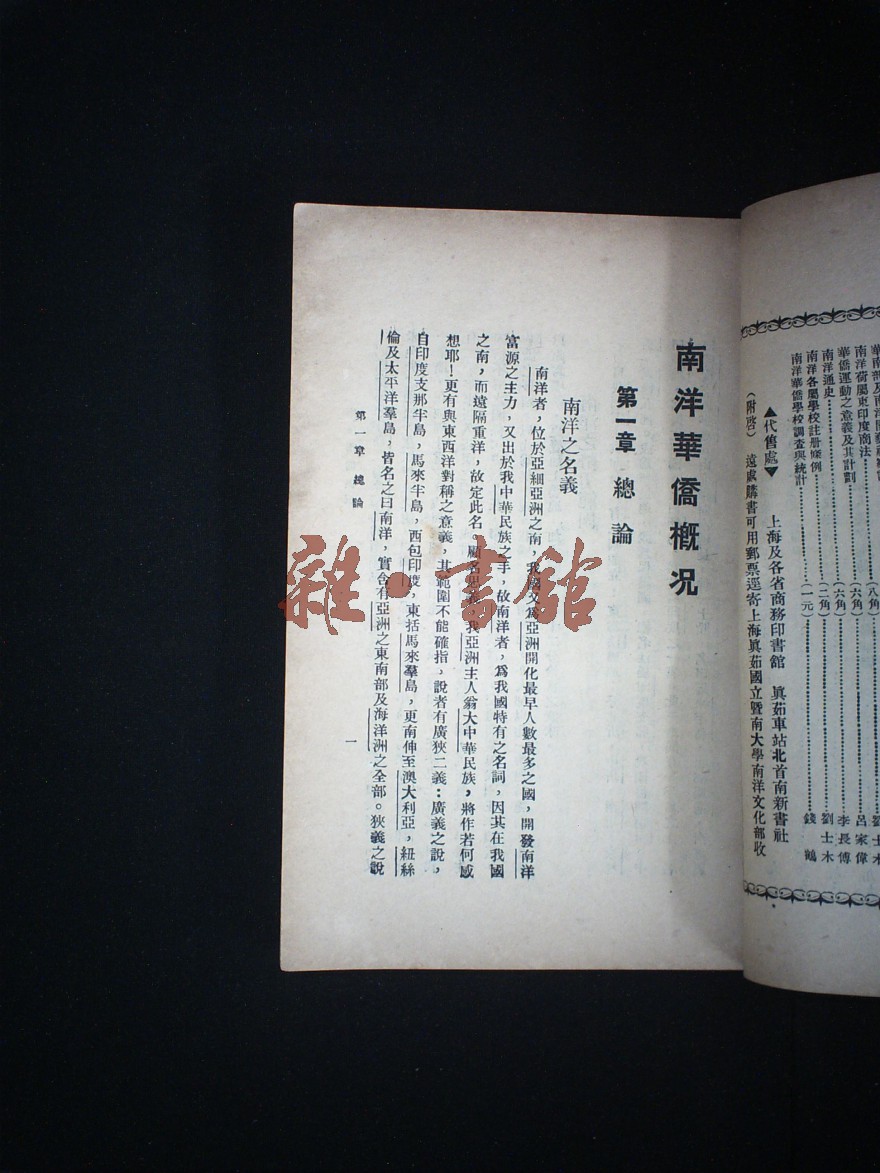 華僑運動之意義及其計劃……(六角)……李長傅
南洋通史
南洋各屬學校註冊條例……(二角)……劉士木
南洋華僑學校調查與統計……(一元)……錢鶴
▲代售處▼ 上海及各省商務印書館 眞茹車站北首南新書社
(附啓) 遠處購書可用郵票逕寄上海眞茹國立暨南大學南洋文化部收
南洋華僑概況
第一章 總論
南洋之名義
南洋者，位於亞細亞洲之南，我國又爲亞洲開化最早人數最多之國，開發南洋
富源之主力，又出於我中華民族之手，故南洋者，爲我國特有之名詞，因其在我國
之南，而遠隔重洋，故定此名。顧名思義，我亞洲主人翁大中華民族，將作若何感
想耶！更有與東西洋對稱之意義，其範圍不能確指，說者有廣狹二義：廣義之說，
自印度支那半島，馬來半島，西包印度，東括馬來羣島，更南伸至澳大利亞，紐絲
倫及太平洋羣島，皆名之曰南洋，實含有亞洲之東南部及海洋洲之全部。狹義之說
第一章 總論
一
雜·書館